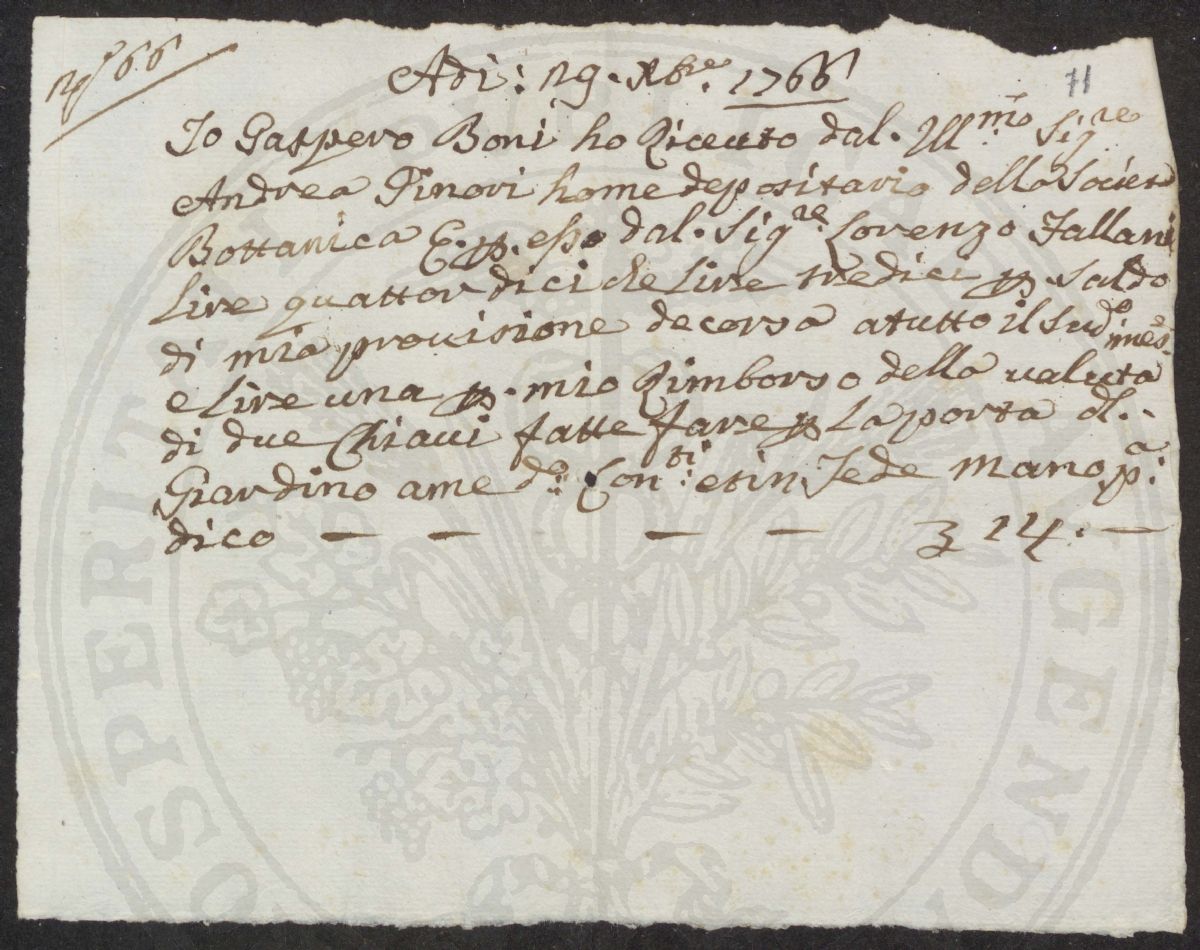 Nº 66
Adi: 29. Xbre. 1766
11
Io Gaspero Boni ho Riceuto dal. Ill.mo Sig.re
Andrea Ginori home depositario della Societa
Bottanica E. p. esso dal. Sig.re Lorenzo Fallani
Lire quattordici che Lire tredici p. saldo
di mia provisione decorsa atutto il Sud.o mese
e Lire una p. mio Rimborso della valuta
di due Chiavi fatte fare p La porta dl.
Giardino a me d.o Con.ti et in Fede mano p.a
dico — — — — £ 14. —
PROSPERITATI PUBLICAE AUGENDAE